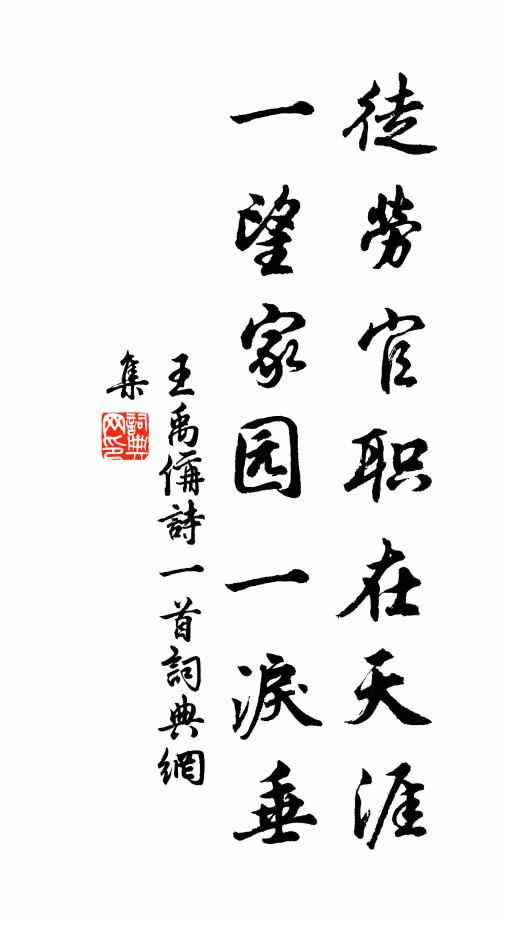 徒劳官职在天涯
一望家园一淚垂
王禹偁詩一首詞典網
集
詞典网印